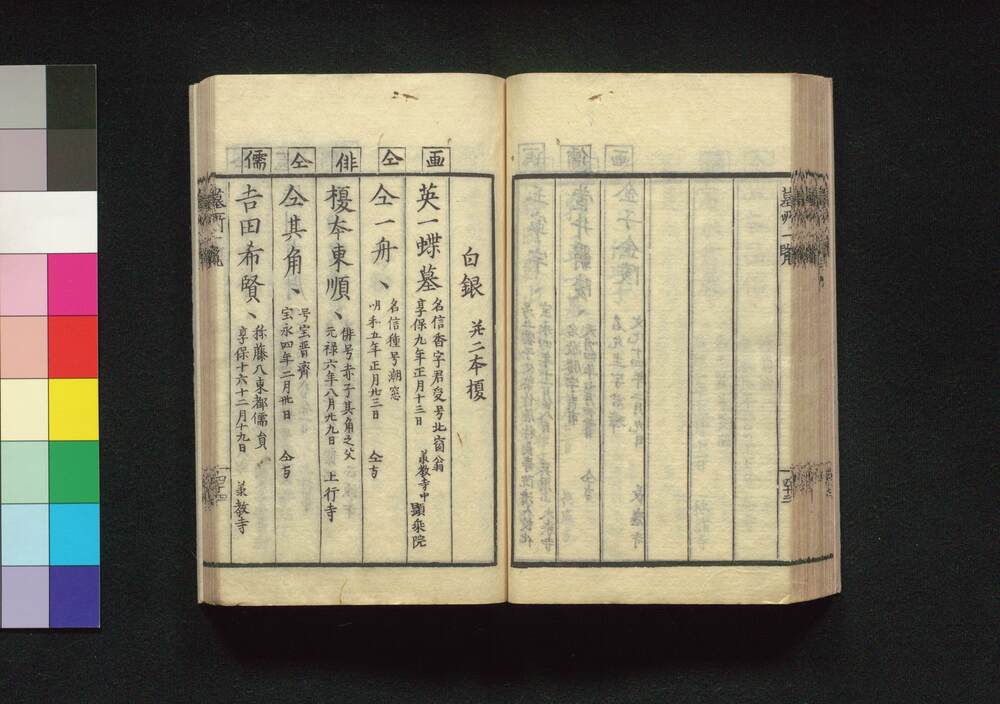 墓所一覧
四十三
白銀 并二本榎
画
英一蝶墓 名信香字君受号北窗翁
享保九年正月十三日 承教寺中 顕乗院
仝
仝一舟、 名信種号潮窓
明和五年正月廿三日 仝寺
俳
榎本東順、 俳号赤子其角之父
元禄六年八月廿九日 上行寺
仝
仝其角、 号宝晋齋
宝永四年二月卅日 仝寺
儒
吉田希賢、 称藤八東都儒員
享保十六十二月十九日 承教寺
墓所一覧
四十四